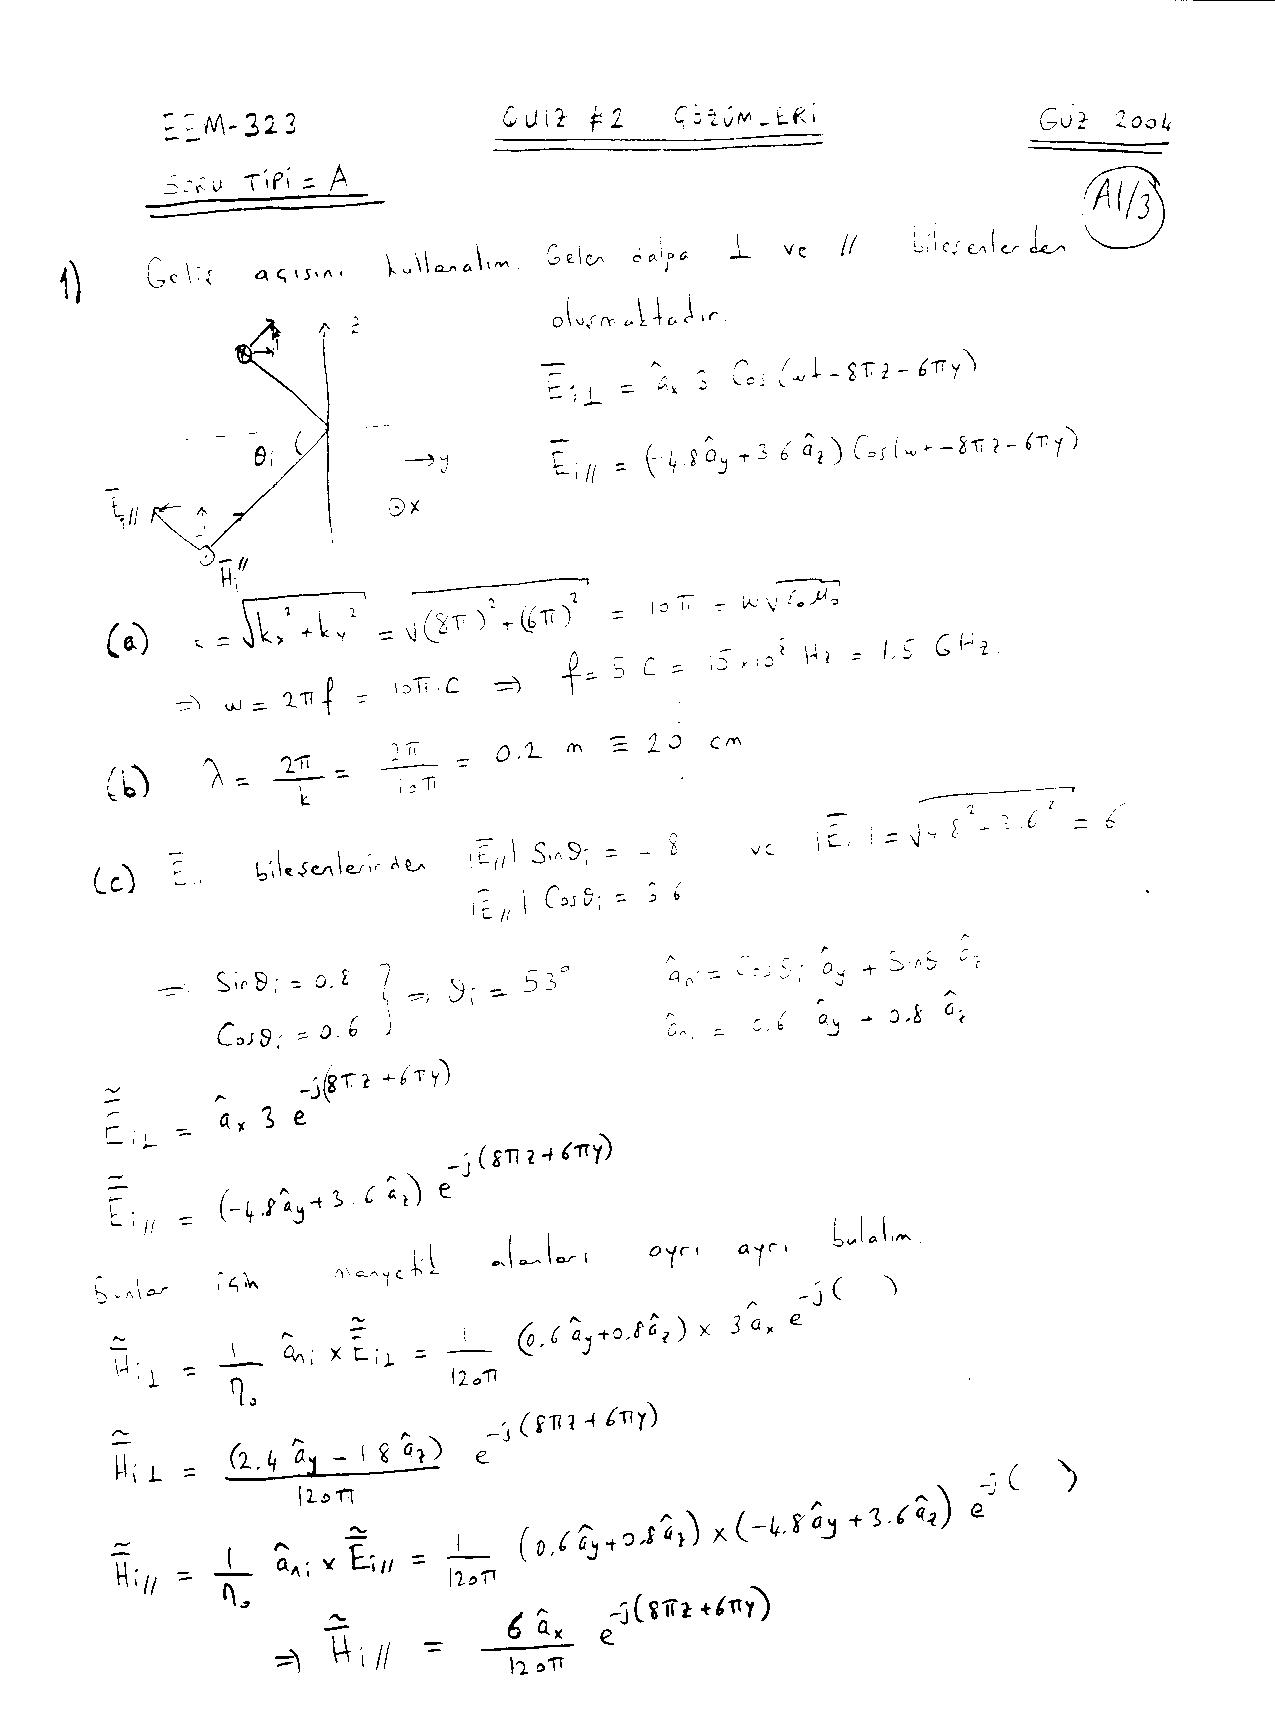 EEM-323 QUIZ #2 ÇÖZÜMLERİ GÜZ 2004
SORU TİPİ = A
A1/3
1) Geliş açısını kullanalım. Gelen dalga ⊥ ve // bileşenlerden
oluşmaktadır.
z
E̅i⊥ = âx 3 Cos(wt-8πz-6πy)
θi
→y
E̅i// = (-4.8ây+3.6âz) Cos(wt-8πz-6πy)
E̅i//
⊙x
H̅i//
(a) = √(kx²+ky²) = √((8π)²+(6π)²) = 10π = w√(ε₀μ₀)
⇒ w = 2πf = 10π.C ⇒ f = 5C = 15×10⁸ Hz = 1.5 GHz.
(b) λ = 2π/k = 2π/10π = 0.2 m ≡ 20 cm
(c) E̅ bileşenlerinden |E̅//| Sinθi = -8 ve |E̅| = √(4.8²+3.6²) = 6
|E̅//| Cosθi = 3.6
⇒ Sinθi = 0.8 } ⇒ θi = 53° âni = Cosθi ây + Sinθ âz
Cosθi = 0.6 âni = 0.6 ây + 0.8 âz
Ẽi⊥ = âx 3 e^-j(8πz+6πy)
Ẽi// = (-4.8ây+3.6âz) e^-j(8πz+6πy)
Bunlar için manyetik alanları ayrı ayrı bulalım.
H̃i⊥ = 1/η₀ âni × Ẽi⊥ = 1/120π (0.6ây+0.8âz) × 3âx e^-j( )
H̃i⊥ = (2.4 ây - 1.8 âz)/120π e^-j(8πz+6πy)
H̃i// = 1/η₀ âni × Ẽi// = 1/120π (0.6ây+0.8âz) × (-4.8ây+3.6âz) e^-j( )
⇒ H̃i// = 6 âx/120π e^-j(8πz+6πy)